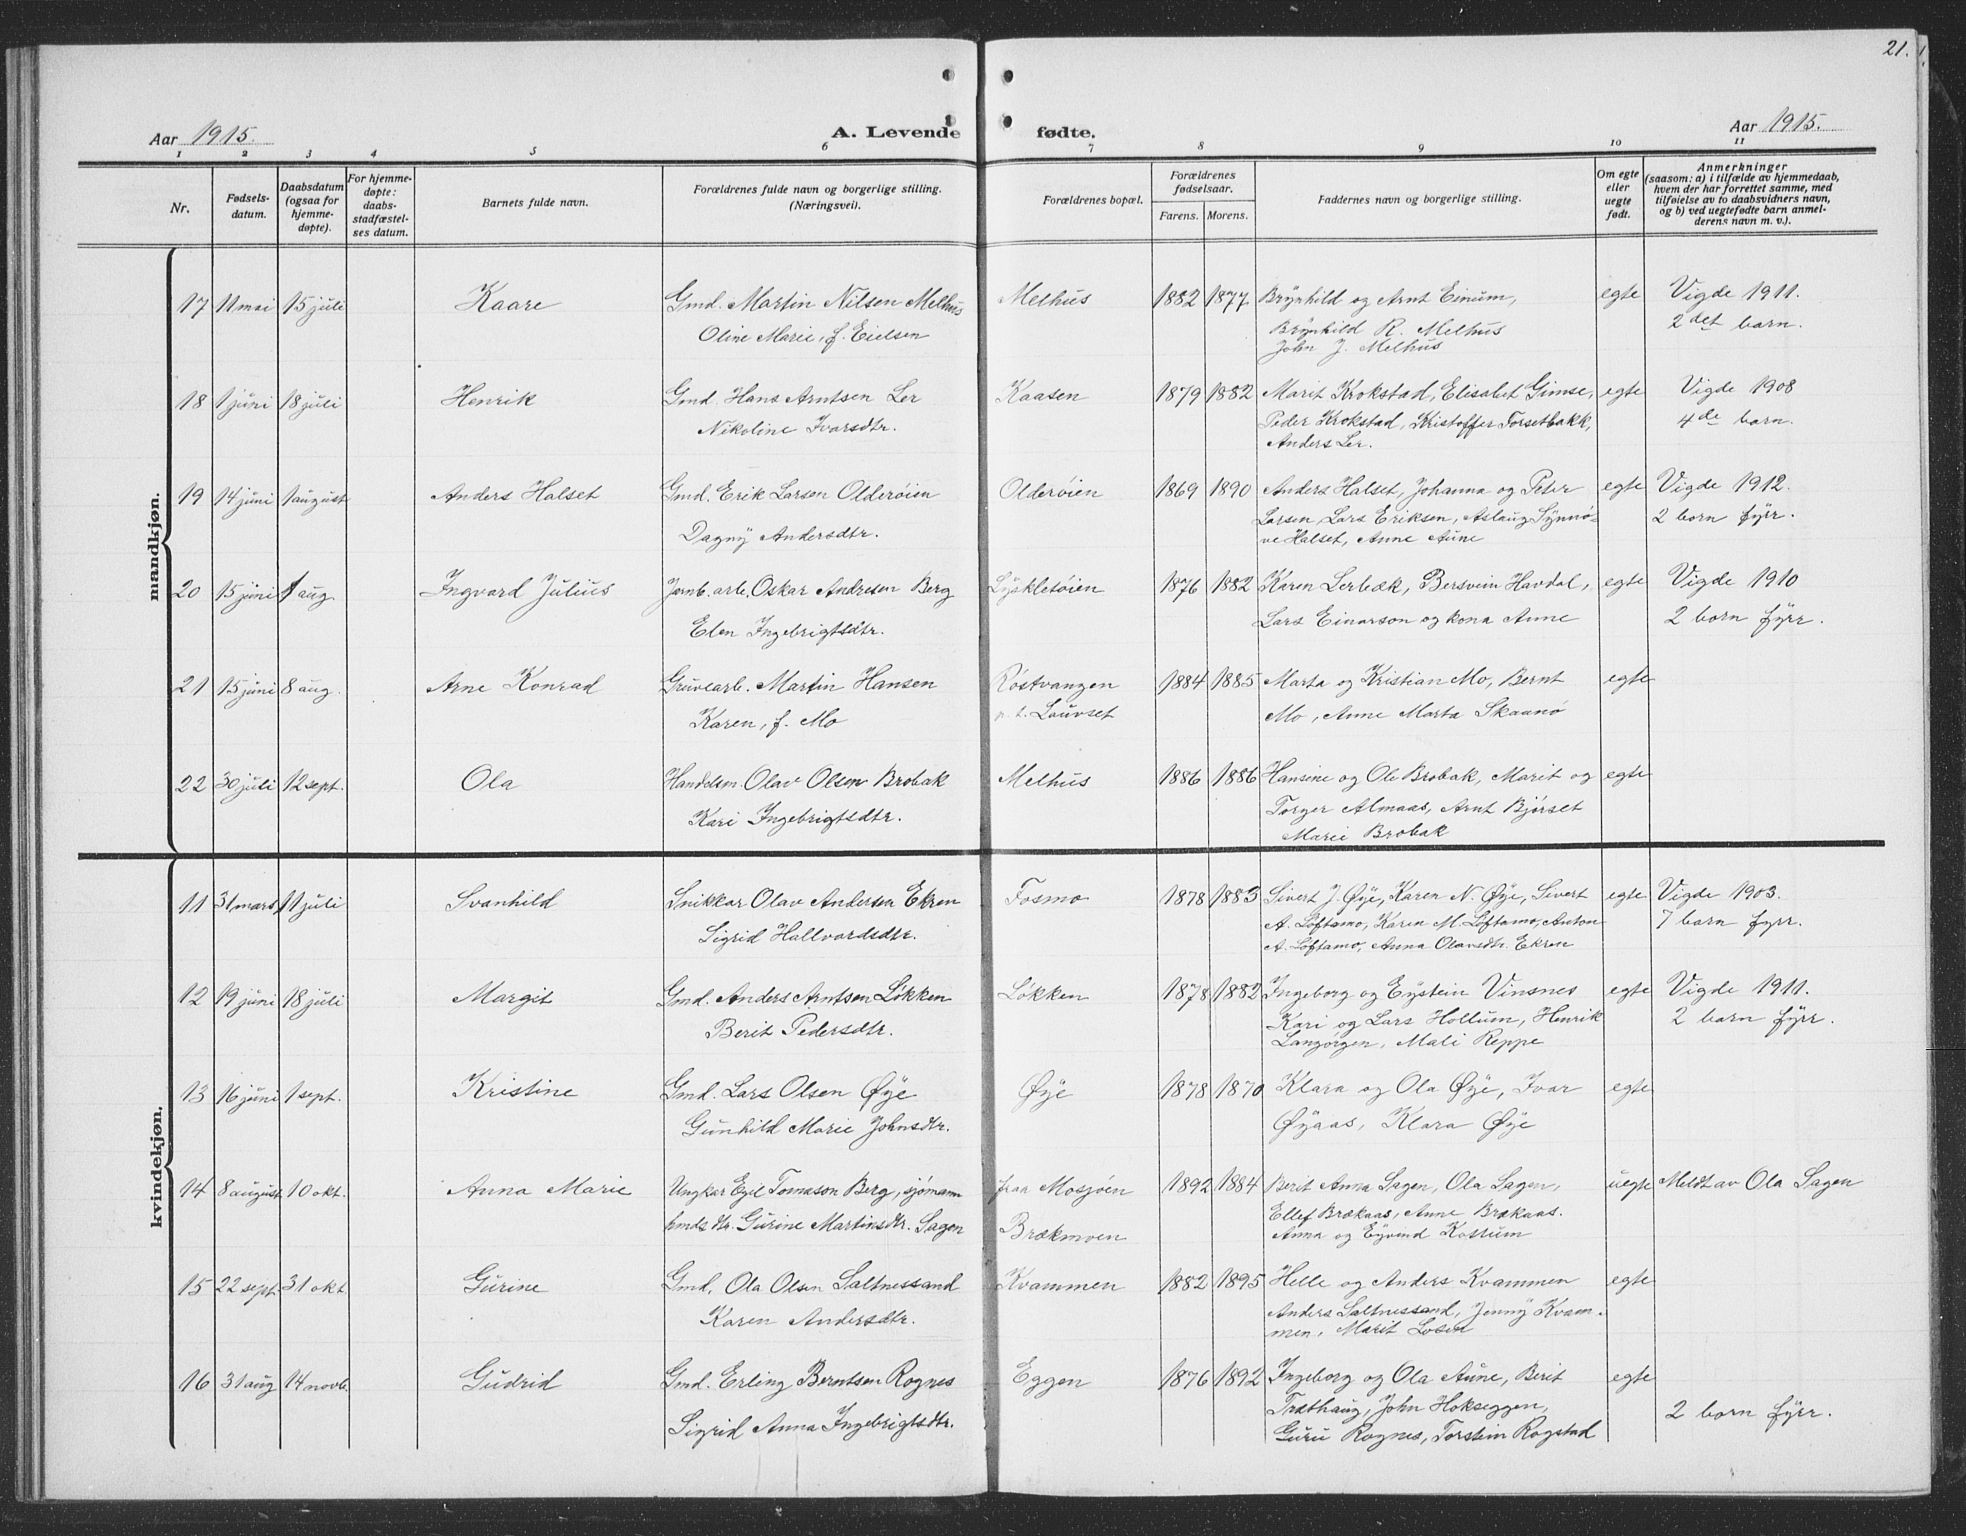 21.
Aar 1915. A. Levende fødte. Aar 1915.
1 2 3 4 5 6 7 8 9 10 11
Nr.
Fødsels-
datum.
Daabsdatum
(ogsaa for
hjemme-
døpte).
For hjemme-
døpte:
daabs-
stadfæstel-
ses datum.
Barnets fulde navn.
Forældrenes fulde navn og borgerlige stilling.
(Næringsvei).
Forældrenes bopæl.
Forældrenes
fødselsaar.
Farens. Morens.
Faddernes navn og borgerlige stilling.
Om egte
eller
uegte
født.
Anmerkninger
(saasom: a) i tilfælde av hjemmedaab,
hvem der har forrettet samme, med
tilføielse av to daabsvidners navn,
og b) ved uegtefødte barn anmel-
derens navn m. v.).
mandkjøn.
17 11 mai 15 juli Kaare Gmd. Martin Nilsen Melhus Melhus 1882 1877 Brynhild og Arnt Einum, egte Vigde 1911.
Oline Marie, f. Eielsen Brynhild R. Melhus 2det barn.
John J. Melhus
18 1 juni 18 juli Henrik Gmd. Hans Arntsen Ler Kaasen 1879 1882 Marit Krokstad, Elisabet Gimse, egte Vigde 1908
Nikoline Ivarsdtr. Peder Krokstad, Kristoffer Forsetbakk, 4de barn.
Anders Ler.
19 14 juni 1 august Anders Halset Gmd. Erik Larsen Olderøien Olderøien 1869 1890 Anders Halset, Johanna og Peter egte Vigde 1912.
Dagny Andersdtr. Larsen, Lars Eriksen, Aslaug Synnø- 2 born fyrr.
ve Halset, Anne Aune
20 15 juni 1 aug. Ingvard Julius Jarnb. arb. Oskar Andresen Berg Lyskletøien 1876 1882 Karen Lerbæk, Bersvein Havdal, egte Vigde 1910
Elen Ingebrigtsdtr. Lars Einarson og kona Anne 2 born fyrr.
21 15 juni 8 aug. Arne Konrad Gruvearb. Martin Hansen Røstvangen 1884 1885 Marta og Kristian Mo, Bernt egte
Karen, f. Mo p. t. Louvset Mo, Anne Marta Skaanø
22 30 juli 12 sept. Ola Handelsm. Olav Olsen Brobak Melhus 1886 1886 Hansine og Ole Brobak, Marit og egte
Kari Ingebrigtsdtr. Torger Almaas, Arnt Bjørset
Marie Brobak
kvindekjøn.
11 31 mars 11 juli Svanhild Snikkar Olav Andersen Ekren Fosmo 1878 1883 Sivert J. Øye, Karen N. Øye, Sivert egte Vigde 1903.
Sigrid Hallvardsdtr. A. Løftamo, Karen M. Løftamo, Anton 7 barn fyrr.
A. Løftamo, Anna Olavsdtr. Ekren
12 19 juni 18 juli Margit Gmd. Anders Arntsen Løkken Løkken 1878 1882 Ingeborg og Eystein Vinsnes egte Vigde 1911.
Berit Pedersdtr. Kari og Lars Hollum, Henrik 2 barn fyrr.
Langørgen, Mali Reppe
13 16 juni 1 sept. Kristine Gmd. Lars Olsen Øye Øye 1878 1870 Klara og Ola Øye, Ivar egte
Gunhild Marie Johnsdtr. Øyaas, Klara Øye
14 8 august 10 okt. Anna Marie Ungkar Egil Tomason Berg, sjømann fraa Mosjøen 1892 1884 Berit Anna Sagen, Ola Sagen, uegte Meldt av Ola Sagen
hmds dtr. Gurine Martinsdtr. Sagen Brækmoen Ellef Brækaas, Anne Brækaas.
Anna og Eyvind Kostum
15 22 sept. 31 okt. Gurine Gmd. Ola Olsen Saltnessand Kvammen 1882 1895 Helle og Anders Kvammen egte
Karen Andersdtr. Anders Saltnessand, Jenny Kvam-
men, Marit Losen
16 31 aug 14 novb. Gudrid Gmd. Erling Berntsen Rognes Eggen 1876 1892 Ingeborg og Ola Aune, Berit egte
Sigrid Anna Ingebrigtsdtr. Træthaug, John Hokseggen, 2 born fyrr.
Guru Rognes, Torstein Rogstad